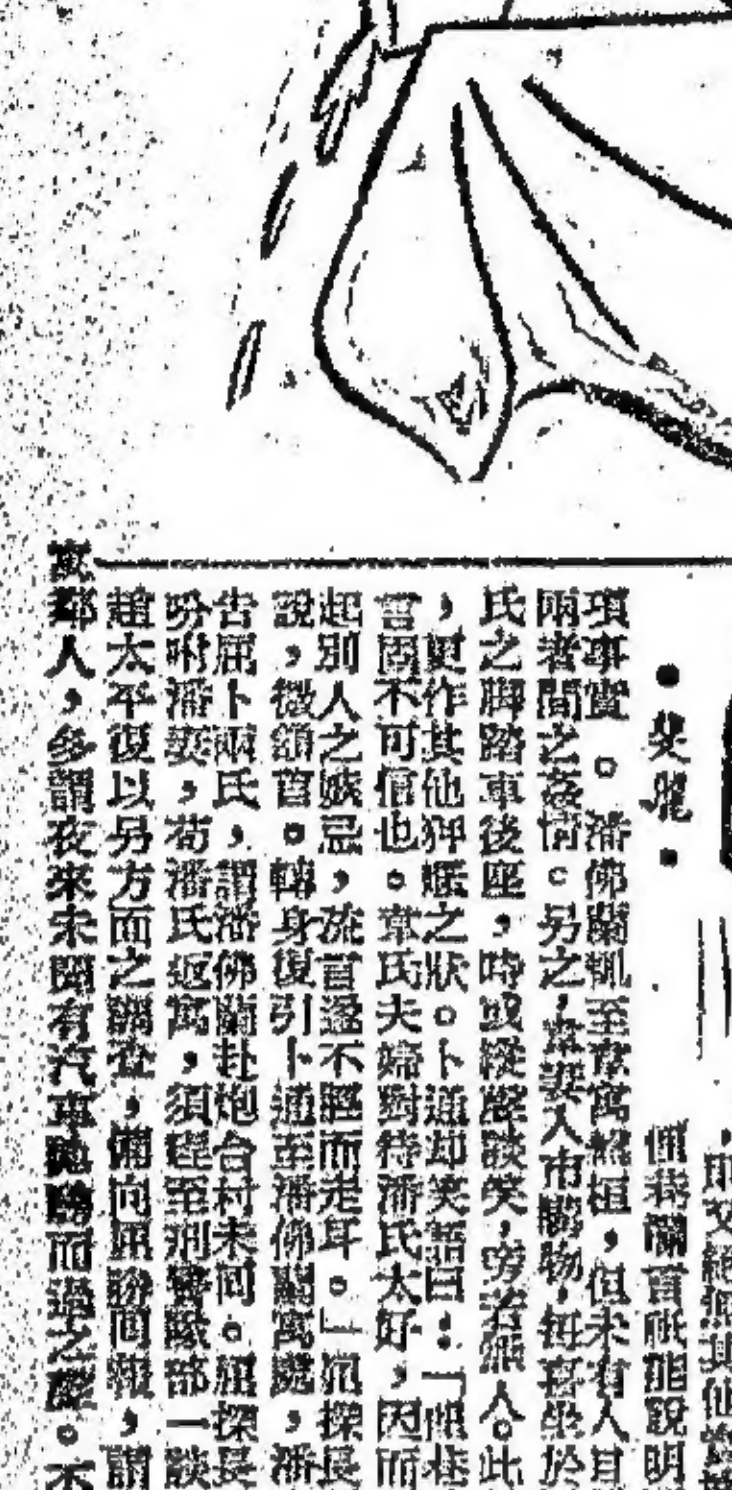 ，即又絕無其他
但我國首祇能說明
・斐龍・
項事實。潘佛蘭雖至韋寓然植，但未有人目
兩者間之姦情。另之，韋妻入市購物，每喜坐於
氏之脚踏車後座，時或縱聲談笑，旁若無人。此
，更作其他狎暱之狀。卜通却笑語曰：「唯巷
言固不可信也。韋氏夫婦對待潘氏太好，因而
起別人之嫉忌，旋言遂不脛而走耳。」屈探長
說，微頷首。轉身復引卜通至潘佛蘭寓處，潘
告屈卜兩氏，謂潘佛蘭赴炮台村未回。屈探長
吩咐潘妻，苟潘氏返寓，須逕至刑警隊部一談
趙太平復以另方面之調查，備向屈盼回報，謂
寓鄰人，多謂夜來未聞有汽車馳騁而過之聲。不